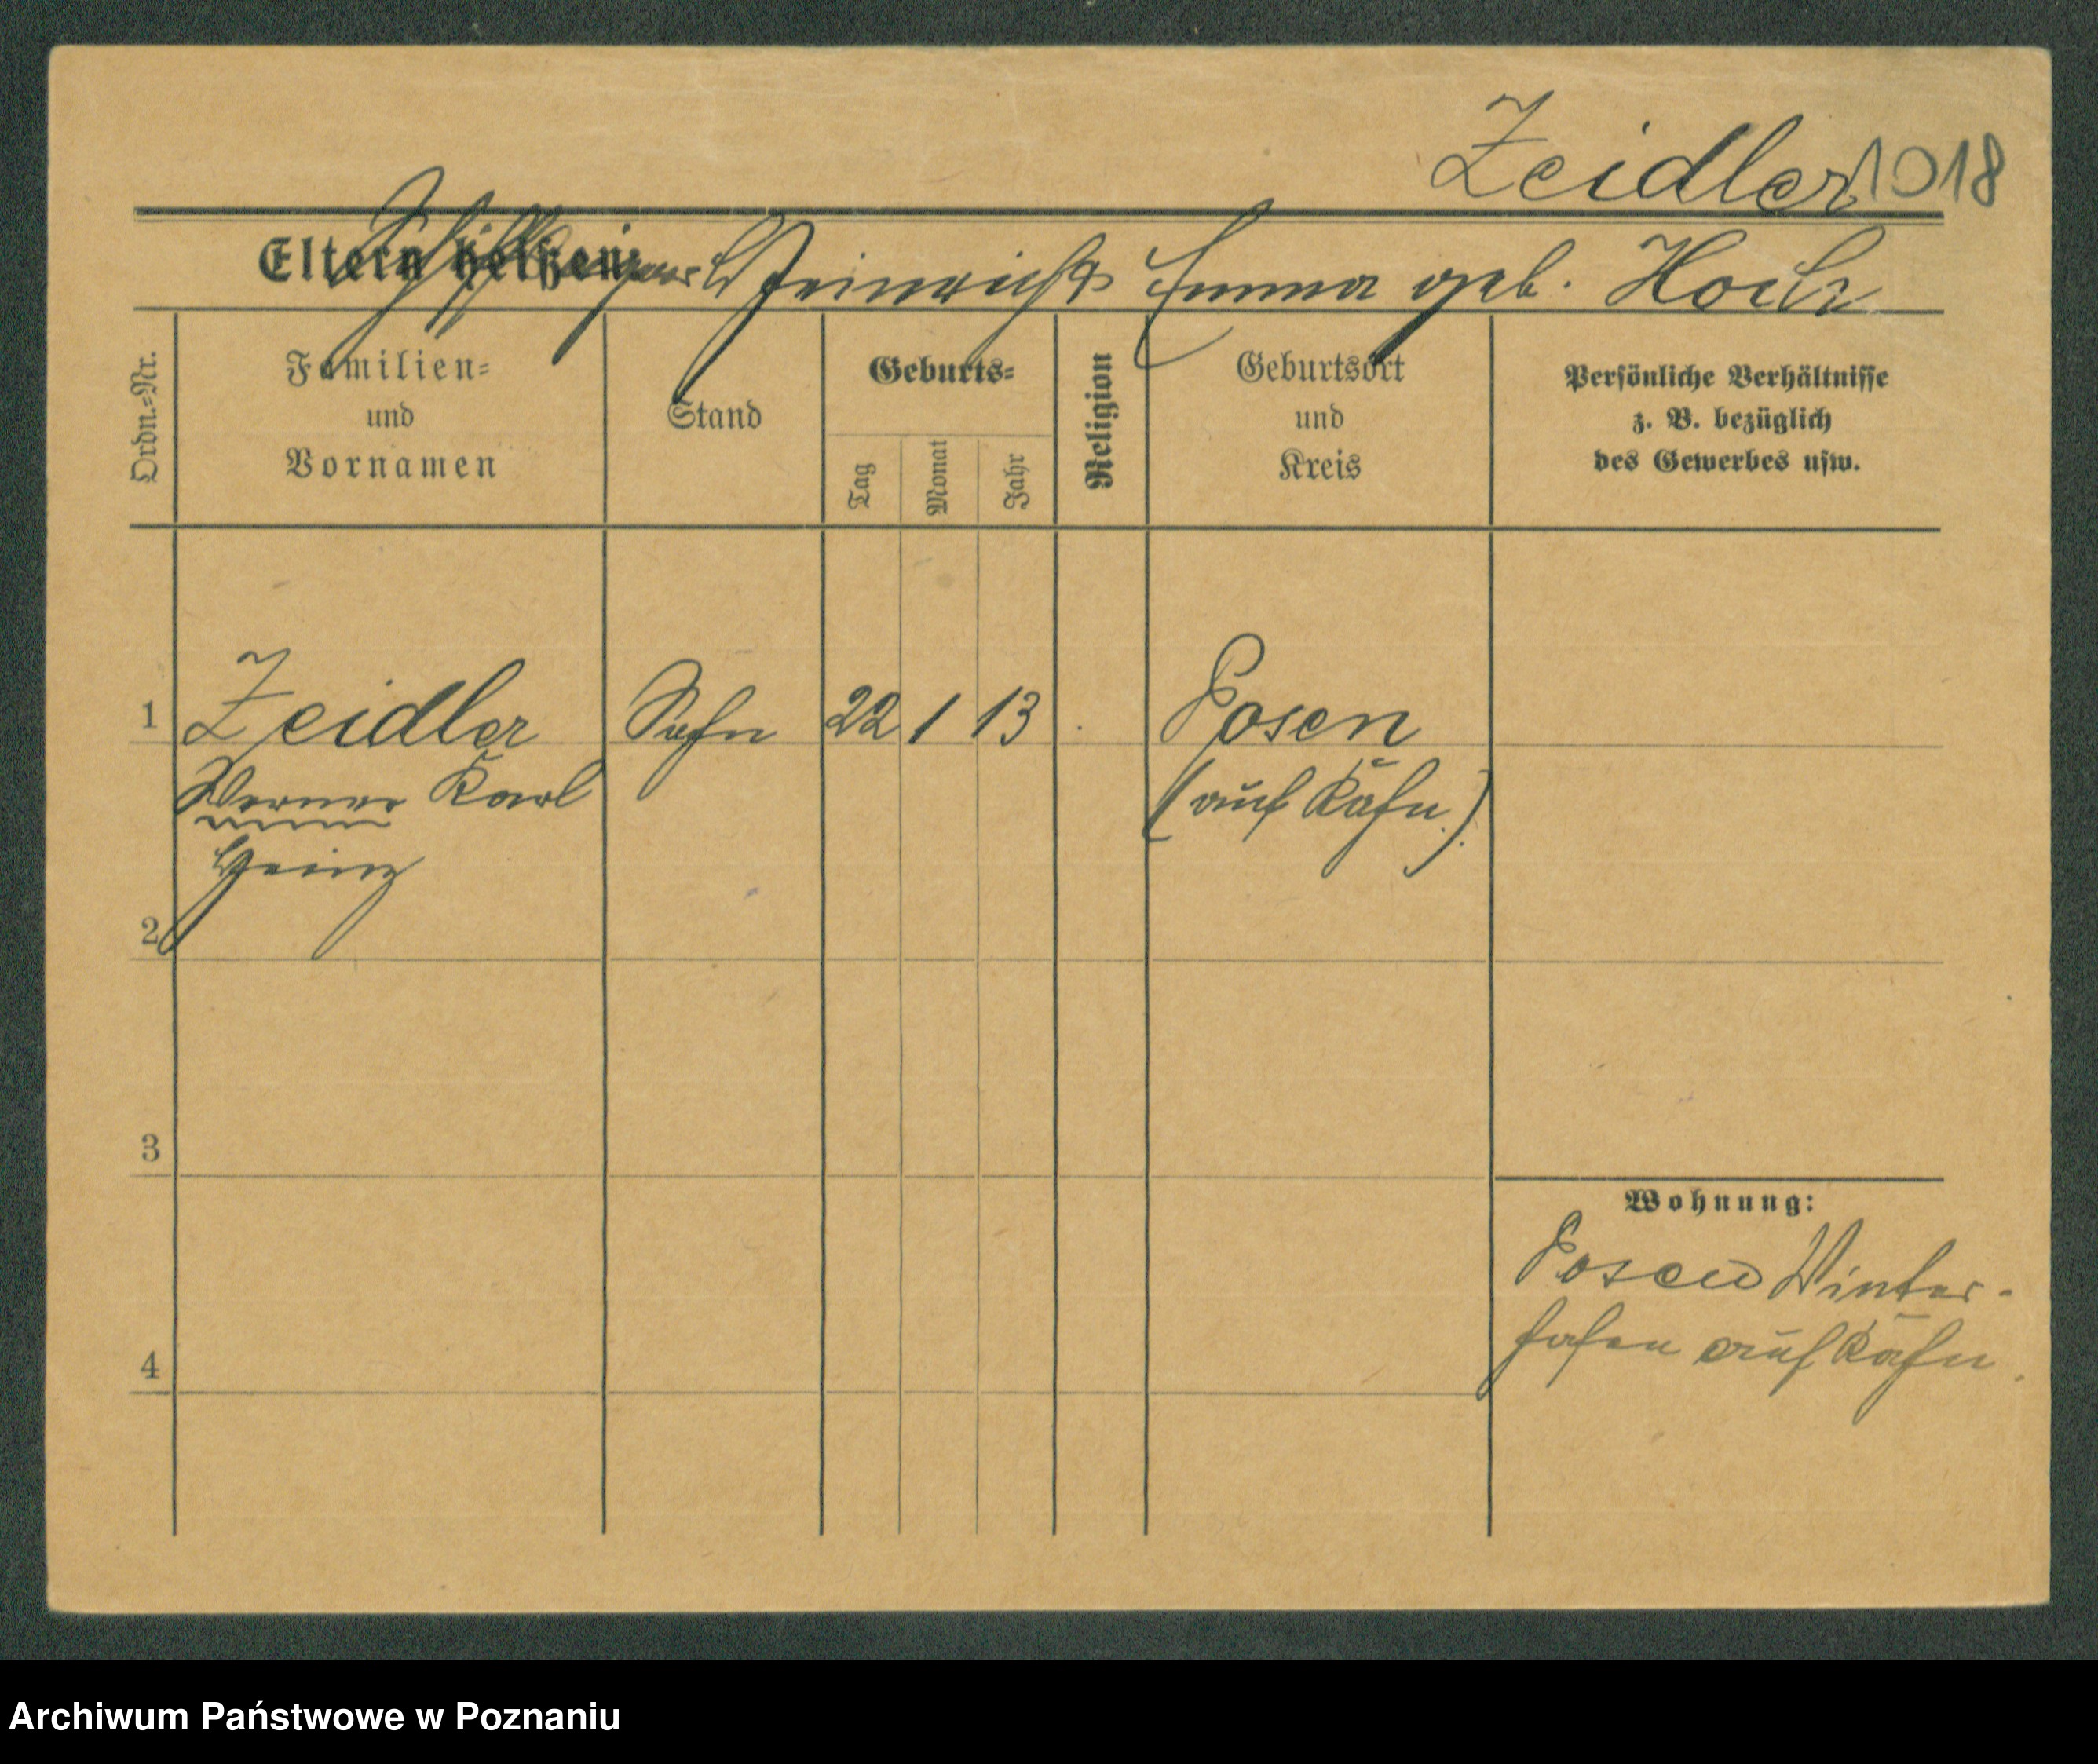 Zeidler 1018
Eltern heißen: Schiffseigner Heinrich & Emma geb. Hoch
Ordn.=Nr.
Familien=
und
Vornamen
Stand
Geburts=
Tag
Monat
Jahr
Religion
Geburtsort
und
Kreis
Persönliche Verhältnisse
z. B. bezüglich
des Gewerbes usw.
1 Zeidler Sohn 22 1 13 Posen
Werner Karl (auf Kahn)
Heinz
2
3
Wohnung:
Posen Winter-
hafen auf Kahn.
4
Archiwum Państwowe w Poznaniu